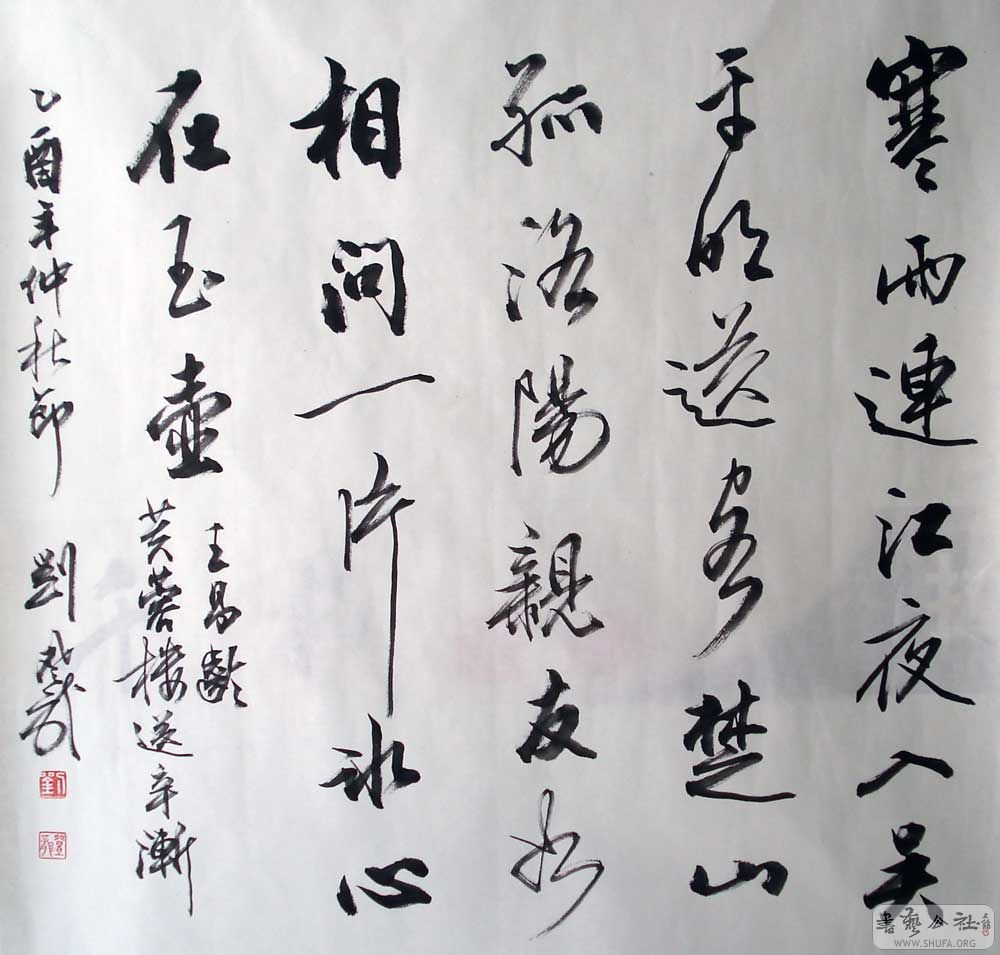 寒雨連江夜入吴
平明送客楚山
孤洛陽親友如
相問一片冰心
在玉壺
王昌齡
芙蓉楼送辛漸
乙酉年仲秋節 劉
劉
書藝公社
WWW.SHUFA.ORG